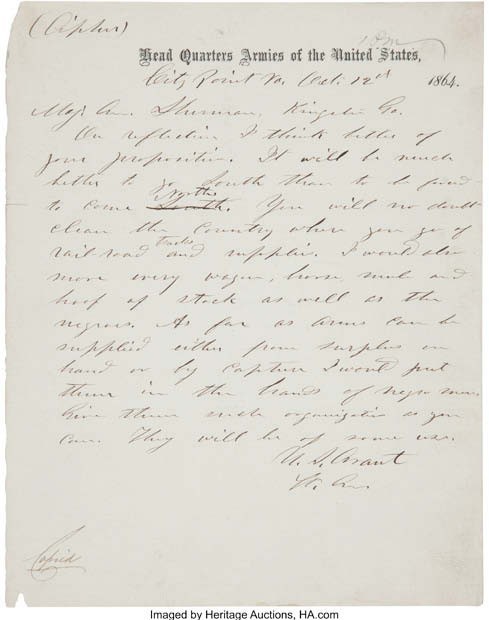 (Cipher)
Head Quarters Armies of the United States,
City Point Va. Oct. 12th 1864.
Maj. Gen. Sherman, Kingston Ga.
On reflection I think better of
your proposition. It will be much
better to go South than to be forced
to come South North. You will no doubt
clean the Country where you go of
rail-road tracks and supplies. I would also
move every wagon, horse mule and
hoof of stock as well as the
negroes. As far as arms can be
supplied either from surplus on
hand or by capture I would put
them in the hands of negro men.
Give them such organization as you
can. They will be of some use.
U. S. Grant
Lt. Gen.
Copied
Imaged by Heritage Auctions, HA.com